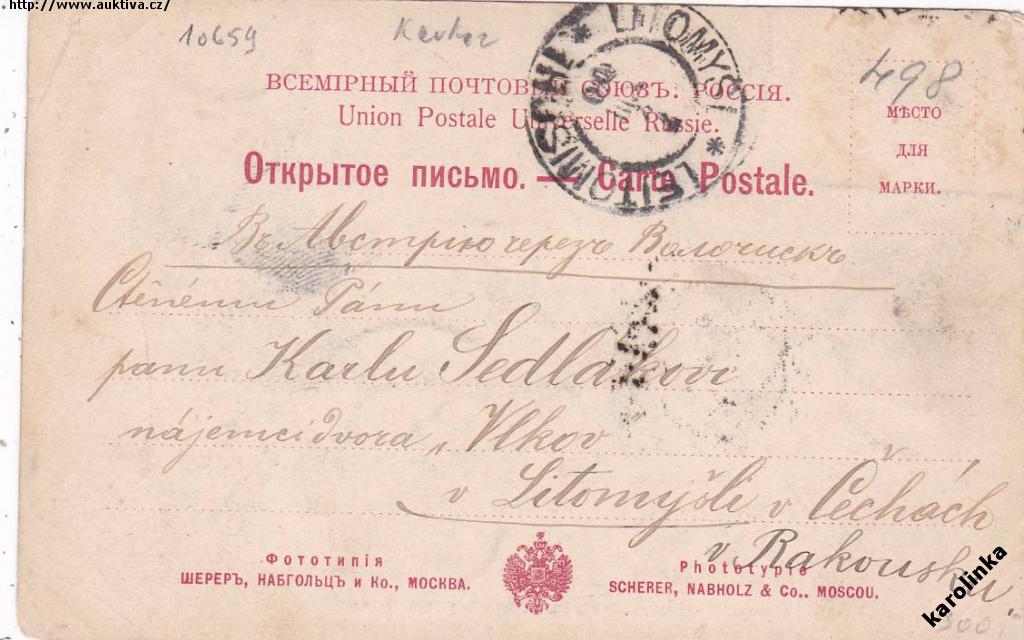 http://www.auktiva.cz/
10659
LITOMYŠL * LEITOMISCHL *
498
ВСЕМІРНЫЙ ПОЧТОВЫЙ СОЮЗЪ. РОССІЯ.
Union Postale Universelle Russie.
Открытое письмо. — Carte Postale.
МѢСТО
ДЛЯ
МАРКИ.
Въ Австрію черезъ Волочискъ
Ctěnému Pánu
panu Karlu Sedlákovi
nájemci dvora Vlkov
v Litomyšli v Čechách
v Rakousku
Фототипія
ШЕРЕРЪ, НАБГОЛЬЦЪ и Ко., МОСКВА.
Phototypie
SCHERER, NABHOLZ & Co., MOSCOU.
karolinka